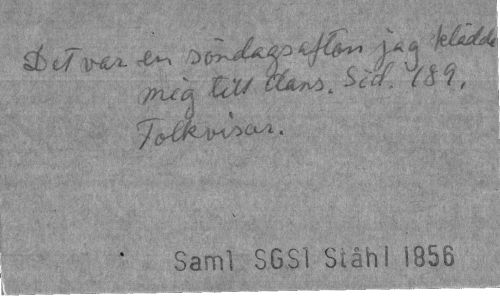 Det var en söndagsafton jag klädde
mig till dans. Sid. 189.
Folkvisor.
Saml SGS1 Ståhl 1856